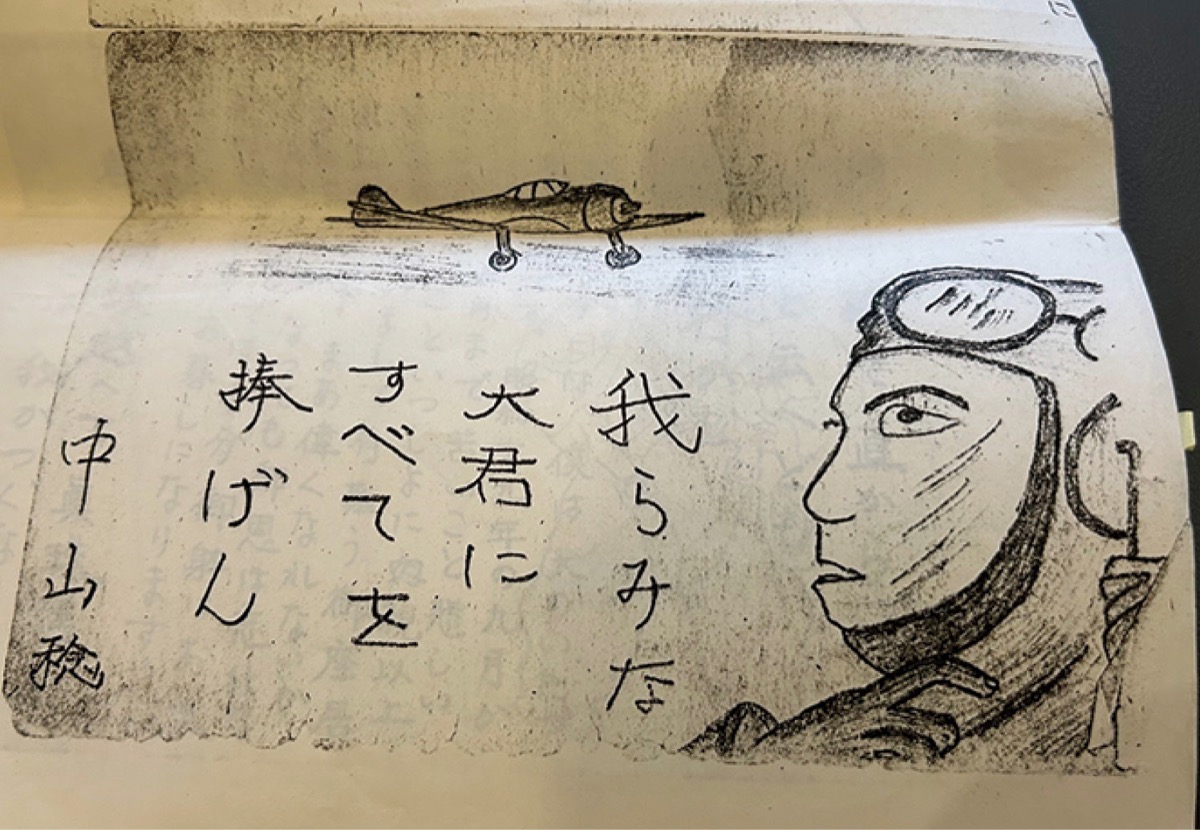 我らみな
大君に
すべてを
捧げん
中山稔